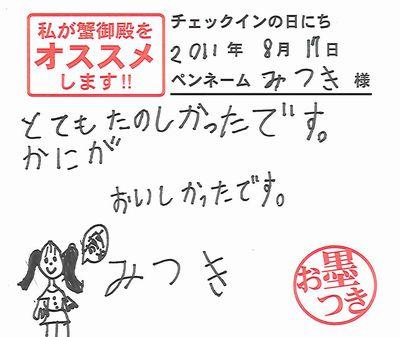 私が蟹御殿を
オススメ
します!!
チェックインの日にち
2011年 8月 17日
ペンネーム みつき 様
とてもたのしかったです。
かにが
おいしかったです。
みつき
お墨つき